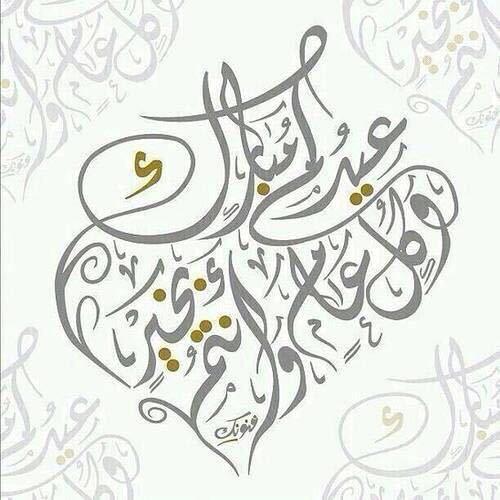 عيدكم مبارك
وكل عام
وأنتم بخير
فنونك